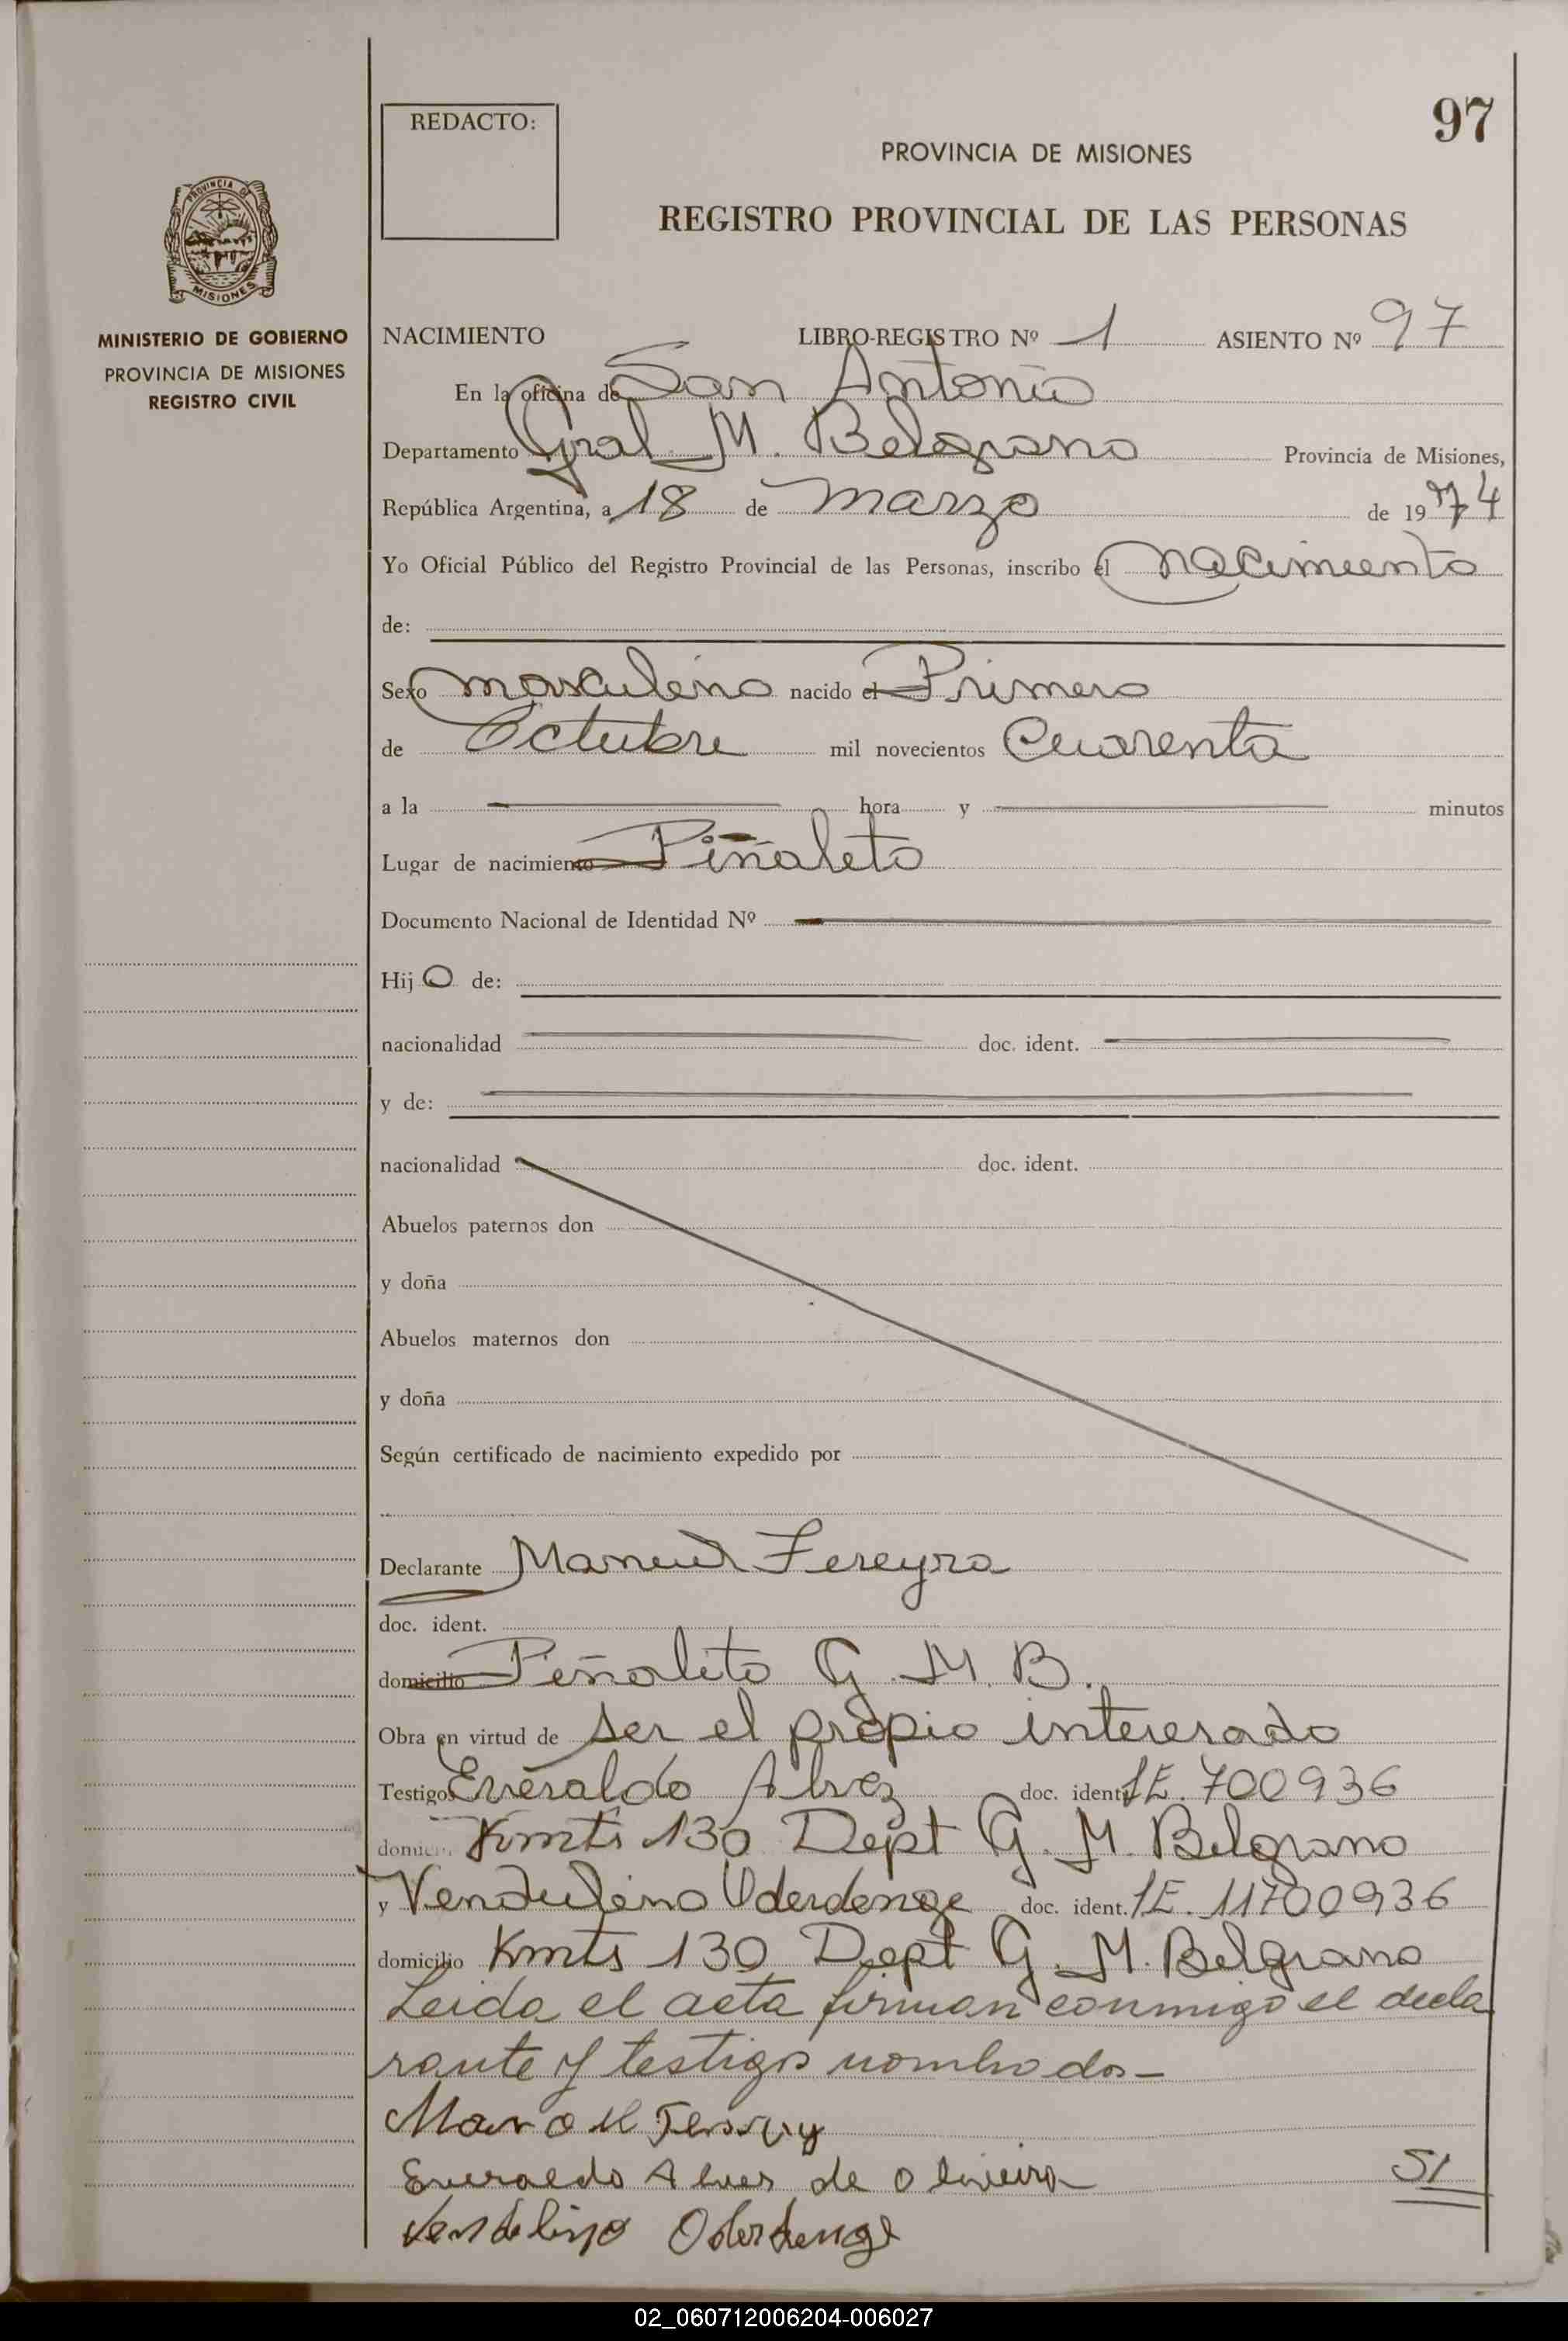 97
REDACTO:
PROVINCIA DE MISIONES
REGISTRO PROVINCIAL DE LAS PERSONAS
PROVINCIA DE
MISIONES
MINISTERIO DE GOBIERNO
PROVINCIA DE MISIONES
REGISTRO CIVIL
NACIMIENTO LIBRO-REGISTRO Nº 1 ASIENTO Nº 97
En la oficina de San Antonio
Departamento Gral M. Belgrano Provincia de Misiones,
República Argentina, a 18 de marzo de 1974
Yo Oficial Público del Registro Provincial de las Personas, inscribo el nacimiento
de:
Sexo masculino nacido el Primero
de Octubre mil novecientos Cuarenta
a la hora y minutos
Lugar de nacimiento Piñaleto
Documento Nacional de Identidad Nº
Hijo de:
nacionalidad doc. ident.
y de:
nacionalidad doc. ident.
Abuelos paternos don
y doña
Abuelos maternos don
y doña
Según certificado de nacimiento expedido por
Declarante Manuel Fereyra
doc. ident.
domicilio Piñalito G. M. B.
Obra en virtud de ser el propio interesado
Testigos Everaldo Alvez doc. ident. L.E. 700936
domicilio Kmts 130 Dept G. M. Belgrano
y Vendulino Oderdenge doc. ident. L.E. 11700936
domicilio Kmts 130 Dept G. M. Belgrano
Leida el acta firman conmigo el decla
rante y testigos nombrados-
Everaldo Alves de Oliveira
SI
Vendelino Oderdenge
02_060712006204-006027